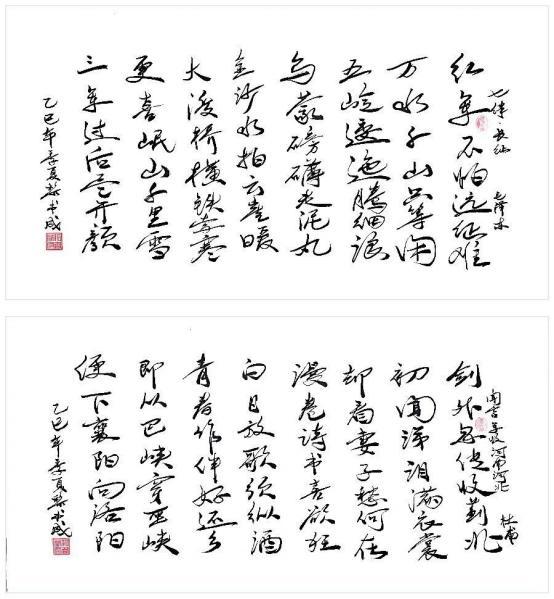 七律·长征
毛泽东
红军不怕远征难
万水千山只等闲
五岭逶迤腾细浪
乌蒙磅礴走泥丸
金沙水拍云崖暖
大渡桥横铁索寒
更喜岷山千里雪
三军过后尽开颜
乙巳年季夏
闻官军收河南河北
杜甫
剑外忽传收蓟北
初闻涕泪满衣裳
却看妻子愁何在
漫卷诗书喜欲狂
白日放歌须纵酒
青春作伴好还乡
即从巴峡穿巫峡
便下襄阳向洛阳
乙巳年季夏